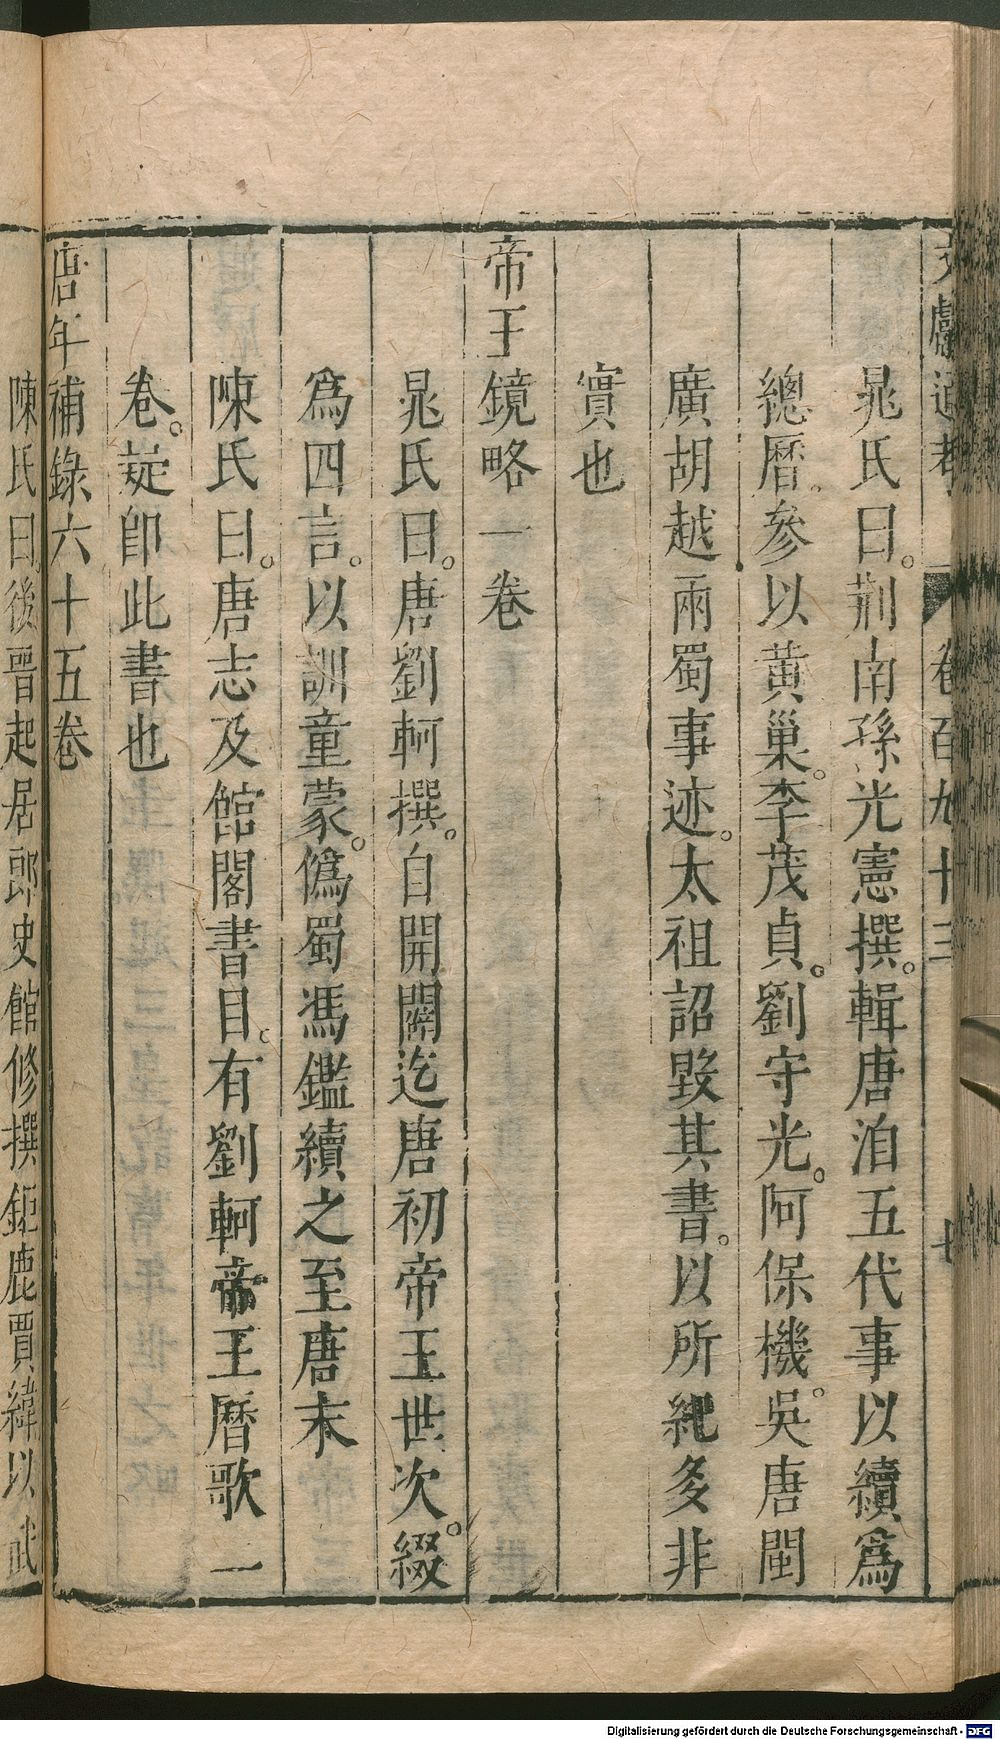 文獻通考 卷百九十三 七
晁氏曰。荆南孫光憲撰。輯唐洎五代事以續爲
總曆。參以黄巢。李茂貞。劉守光。阿保機。吳唐閩
廣胡越兩蜀事迹。太祖詔毀其書。以所紀多非
實也
帝王鏡略一卷
晁氏曰。唐劉軻撰。自開闢迄唐初帝王世次。綴
爲四言。以訓童蒙。僞蜀馮鑑續之至唐末
陳氏曰。唐志及館閣書目。有劉軻帝王曆歌一
卷。疑卽此書也
唐年補錄六十五卷
陳氏曰。後晉起居郎史館修撰鉅鹿賈緯以武
Digitalisierung gefördert durch die Deutsche Forschungsgemeinschaft - DFG